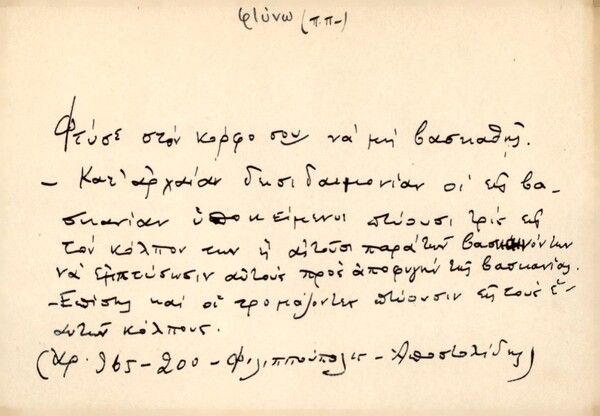 φτύνω (π.π.-)
Φτύσε στόν κόρφο σου νά μή βασκαθῆς.
- Κατ' ἀρχαίαν δεισιδαιμονίαν οἱ εἰς βα-
σκανίαν ὑποκείμενοι πτύουσι τρίς εἰς
τόν κόλπον των ἤ αἰτοῦσι παρά τῶν βασκαινόντων
νά ἐμπτύσωσιν αὐτούς πρός ἀποφυγήν τῆς βασκανίας.
- Ἐπίσης καί οἱ τρομάζοντες πτύουσιν εἰς τούς ἑ-
αυτῶν κόλπους.
(Χρ. 265-200 - Φιλιππούπολις - Ἀποστολίδης)